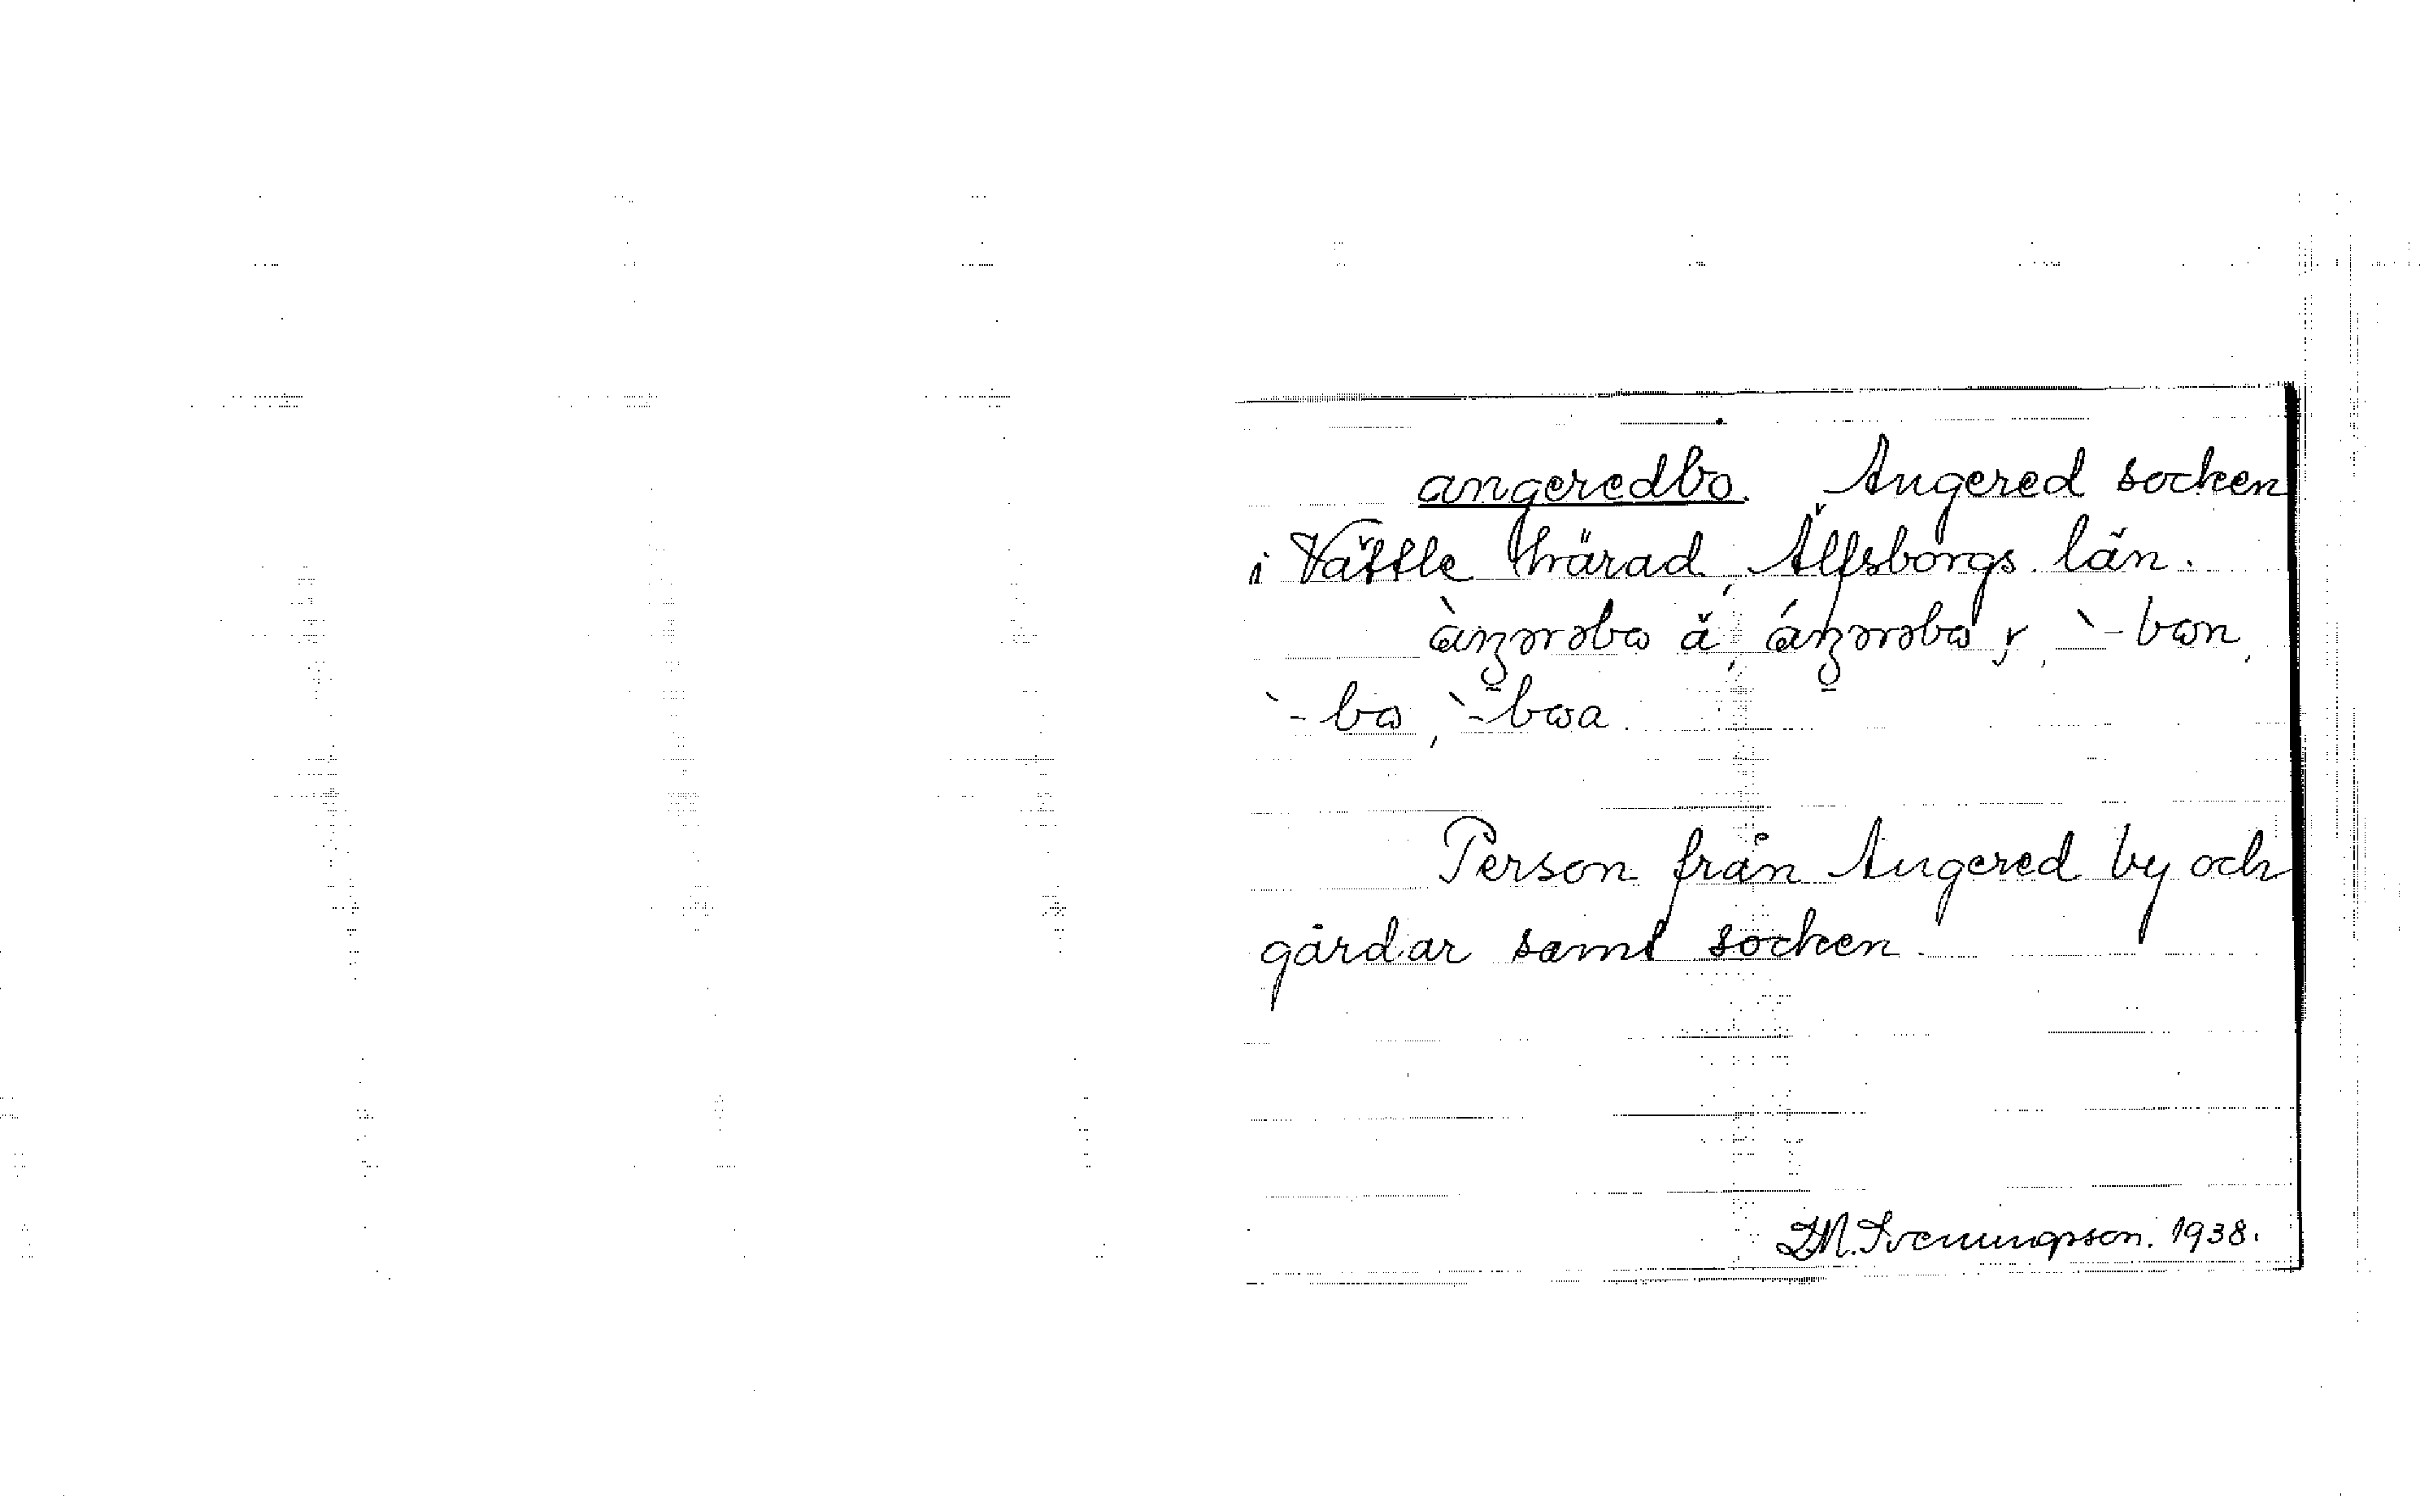 angeredbo. Angered socken
i Vättle härad, Älfsborgs län.
àŋərəbɷ ä, áŋərəbɷ, r, `-bɷn,
`-bɷ, `-bɷa.
Person från Angered by och
gårdar samt socken.
D.M. Svenungsson. 1938.